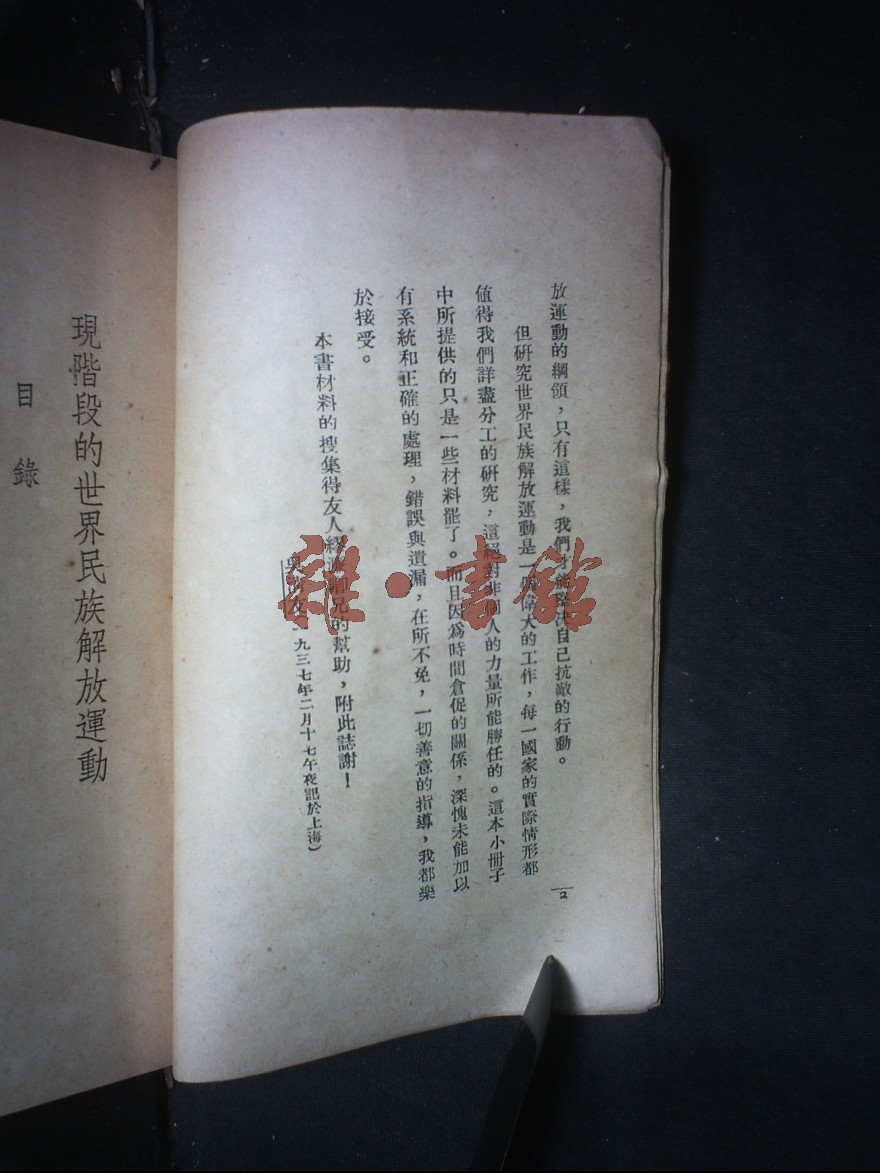 放運動的綱領，只有這樣，我們才能　自己抗敵的行動。
但研究世界民族解放運動是一個偉大的工作，每一國家的實際情形都
値得我們詳盡分工的研究，這絕對非個人的力量所能勝任的。這本小冊子
中所提供的只是一些材料罷了。而且因爲時間倉促的關係，深愧未能加以
有系統和正確的處理，錯誤與遺漏，在所不免，一切善意的指導，我都樂
於接受。
本書材料的搜集得友人　兄的幫助，附此誌謝！
吳　友　一九三七年二月十七午夜記於上海）
2
現階段的世界民族解放運動
目錄
雜·書館